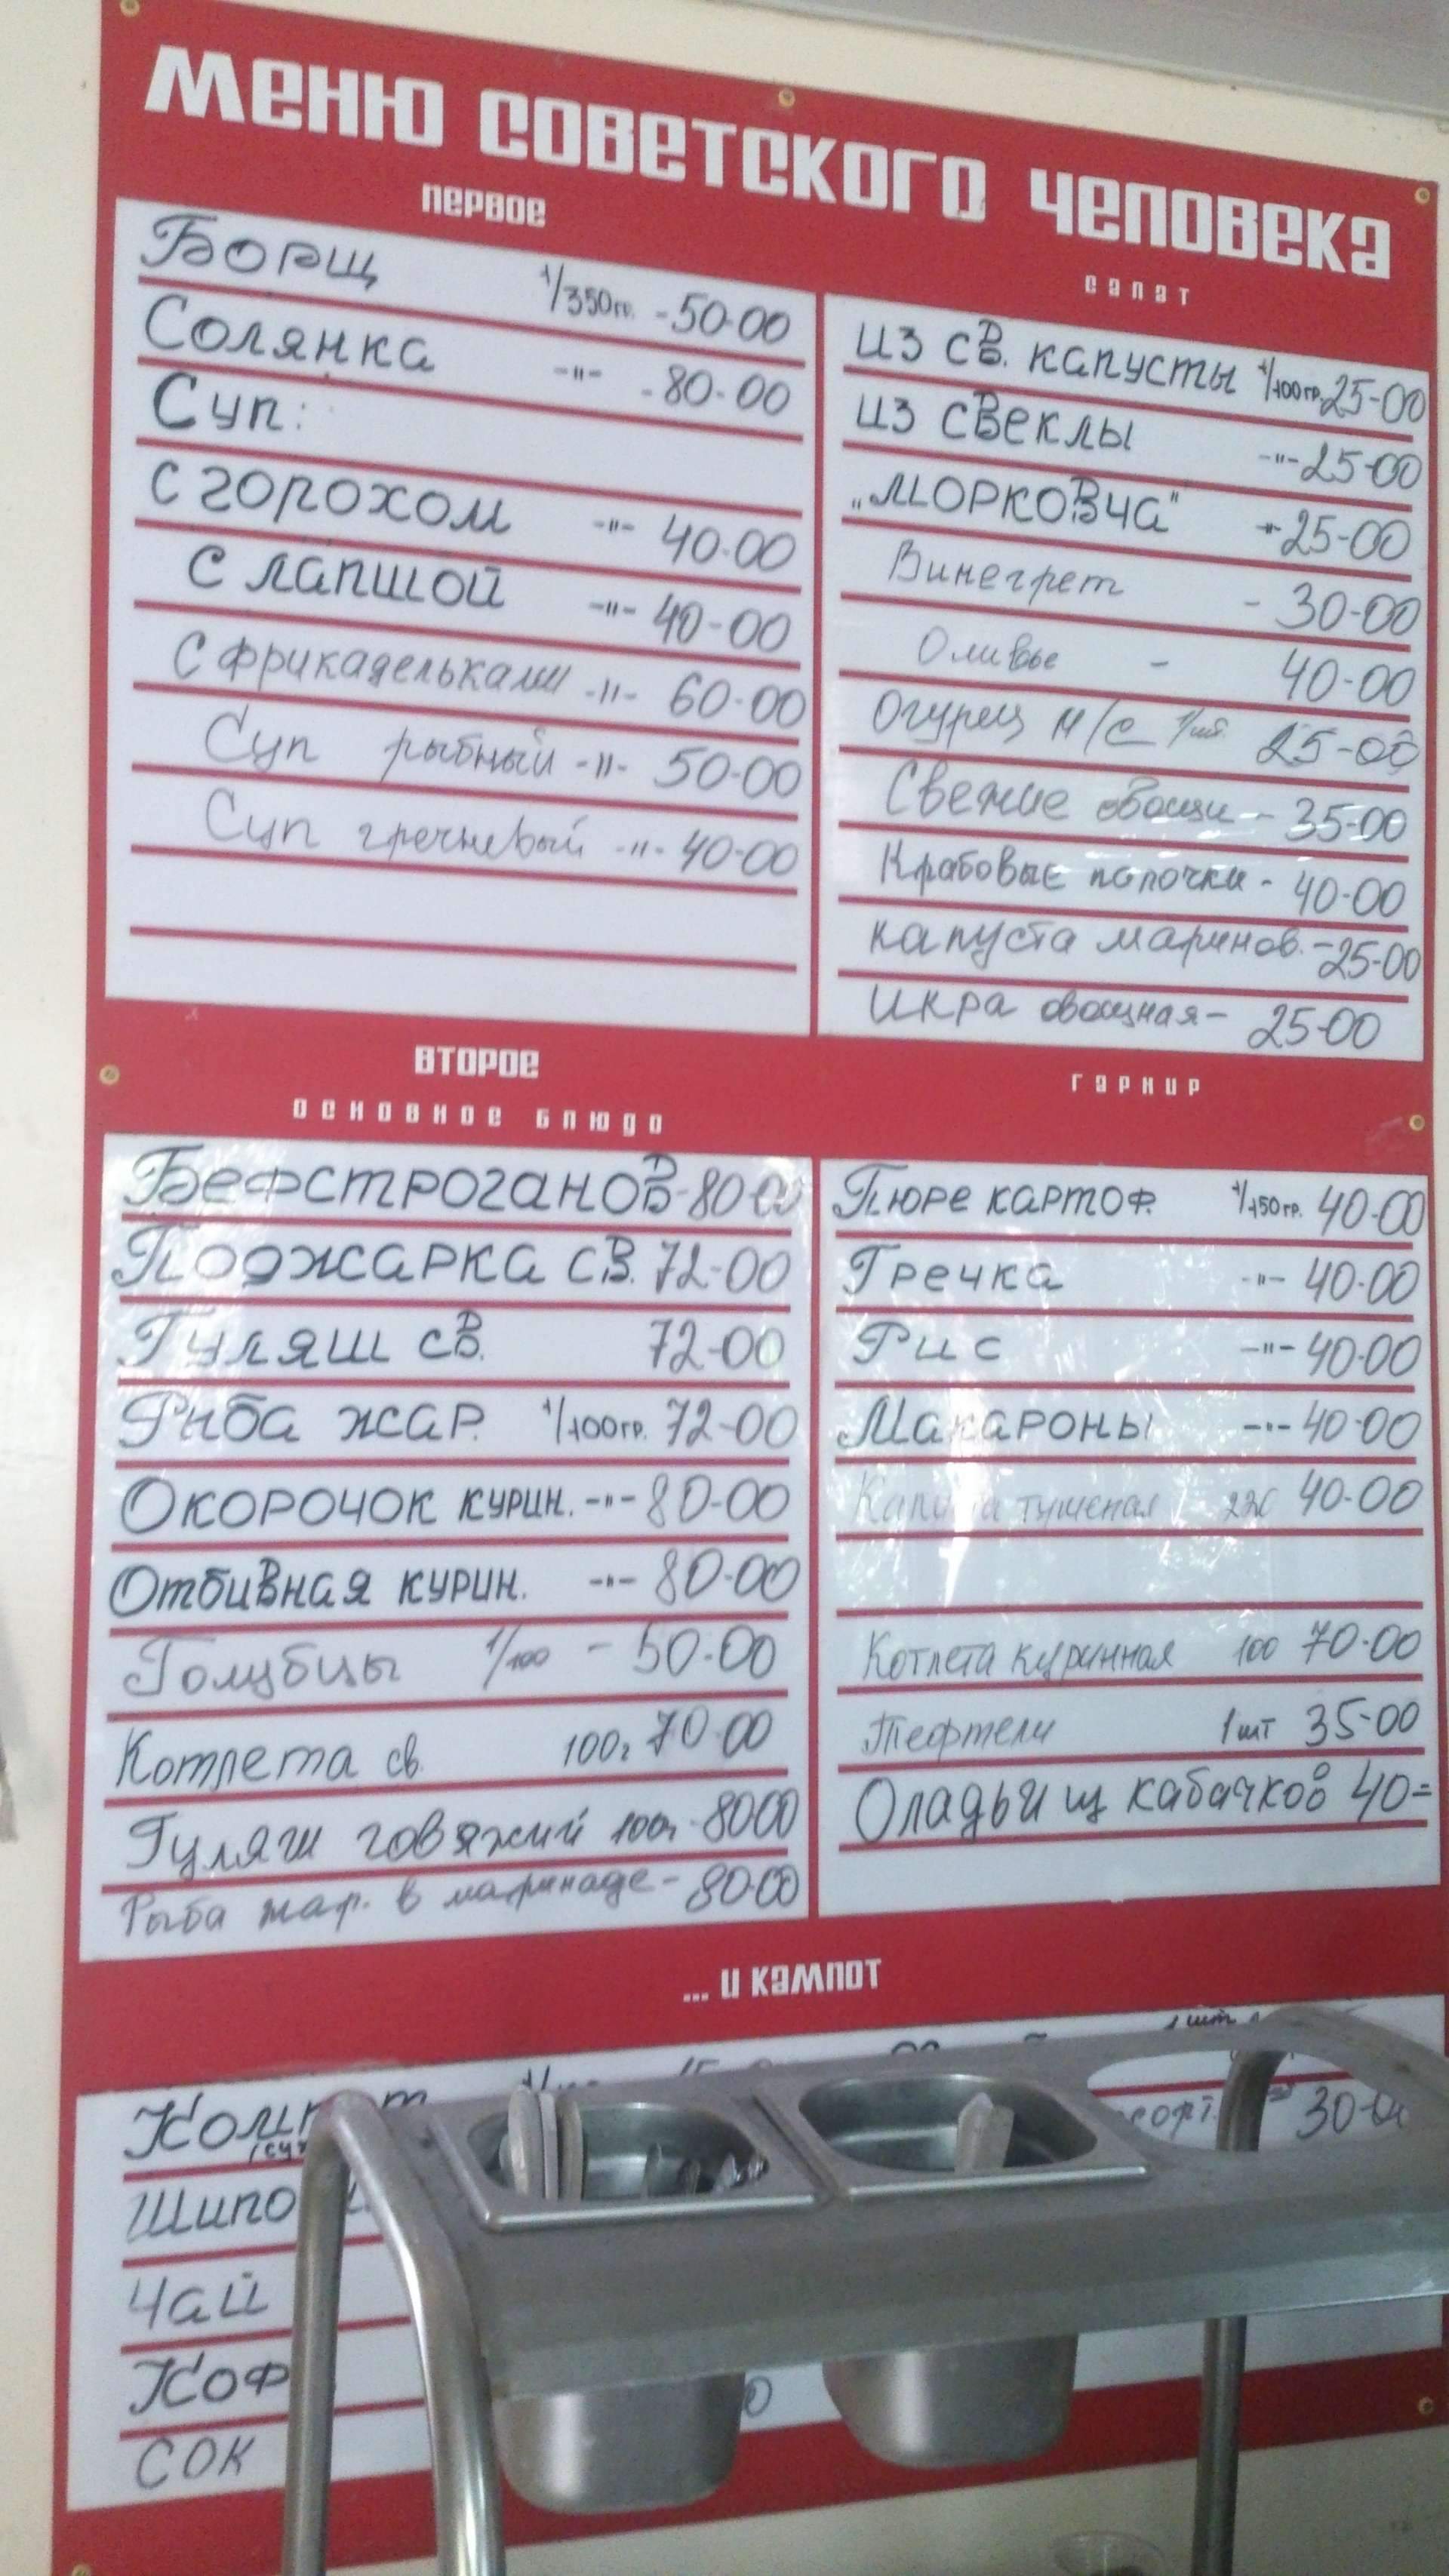 меню советского человека
первое
Борщ 1/350гр. - 50-00
Солянка -"- - 80-00
Суп:
с горохом -"- 40-00
с лапшой -"- 40-00
с фрикадельками -"- 60-00
Суп рыбный -"- 50-00
Суп гречневый -"- 40-00
салат
из св. капусты 1/100гр. 25-00
из свеклы -"- 25-00
„морковча" -"- 25-00
Винегрет - 30-00
Оливье - 40-00
Огурец м/с 1/шт. 25-00
Свежие овощи - 35-00
Крабовые палочки - 40-00
капуста маринов. - 25-00
икра овощная - 25-00
второе
основное блюдо
Бефстроганов - 80-00
Поджарка св. 72-00
Гуляш св. 72-00
Рыба жар. 1/100гр. 72-00
Окорочок курин. -"- 80-00
Отбивная курин. -"- 80-00
Голубцы 1/100 - 50-00
Котлета св. 100г 70-00
Гуляш говяжий 100г - 80-00
Рыба жар. в маринаде - 80-00
гарнир
Пюре картоф. 1/150гр. 40-00
Гречка -"- 40-00
Рис -"- 40-00
Макароны -"- 40-00
тушеная 40-00
Котлета куринная 100 70-00
Тефтели 1шт 35-00
Оладьи из кабачков 40=
... и кампот
1 шт
30-00
Чай
сок